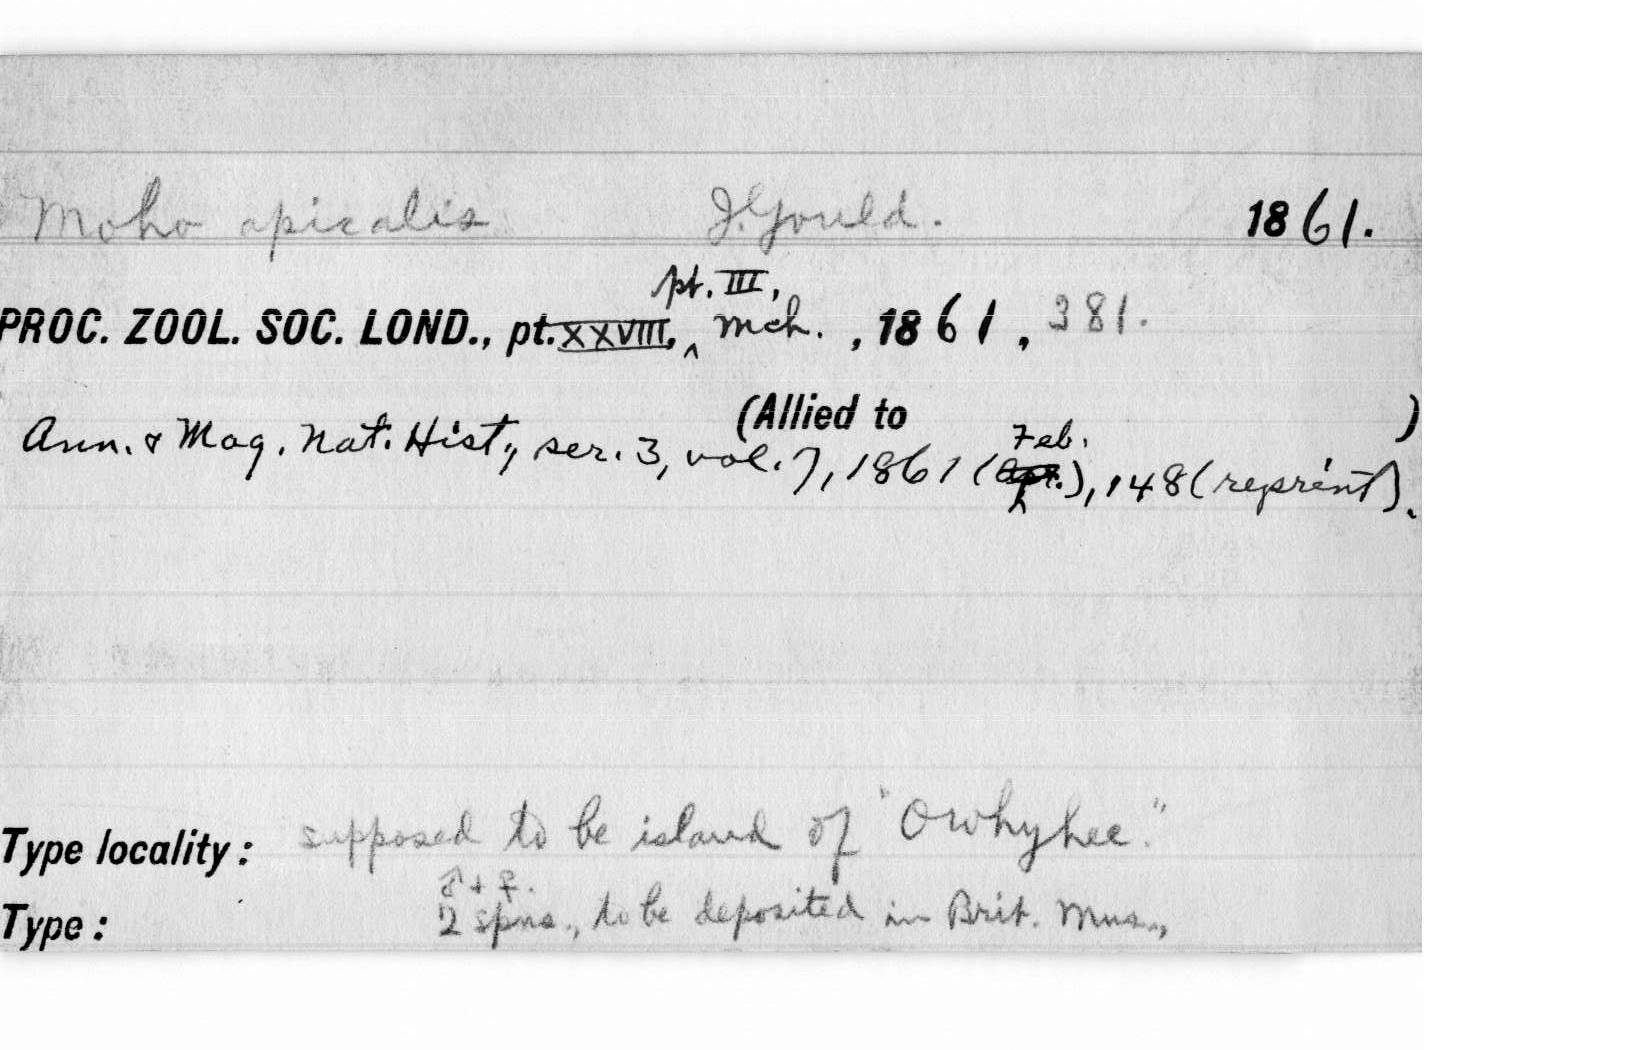 Moho apicalis J. Gould. 1861.
pt. III,
PROC. ZOOL. SOC. LOND., pt. XXVIII, ^ Mch. , 1861 , 381.
(Allied to )
Feb.
Ann. & Mag. Nat. Hist., ser. 3, vol. 7, 1861 (Apr.), 148 (reprint).
Type locality: supposed to be island of "Owhyhee."
♂ + ♀.
Type: 2 spns., to be deposited in Brit. Mus.,